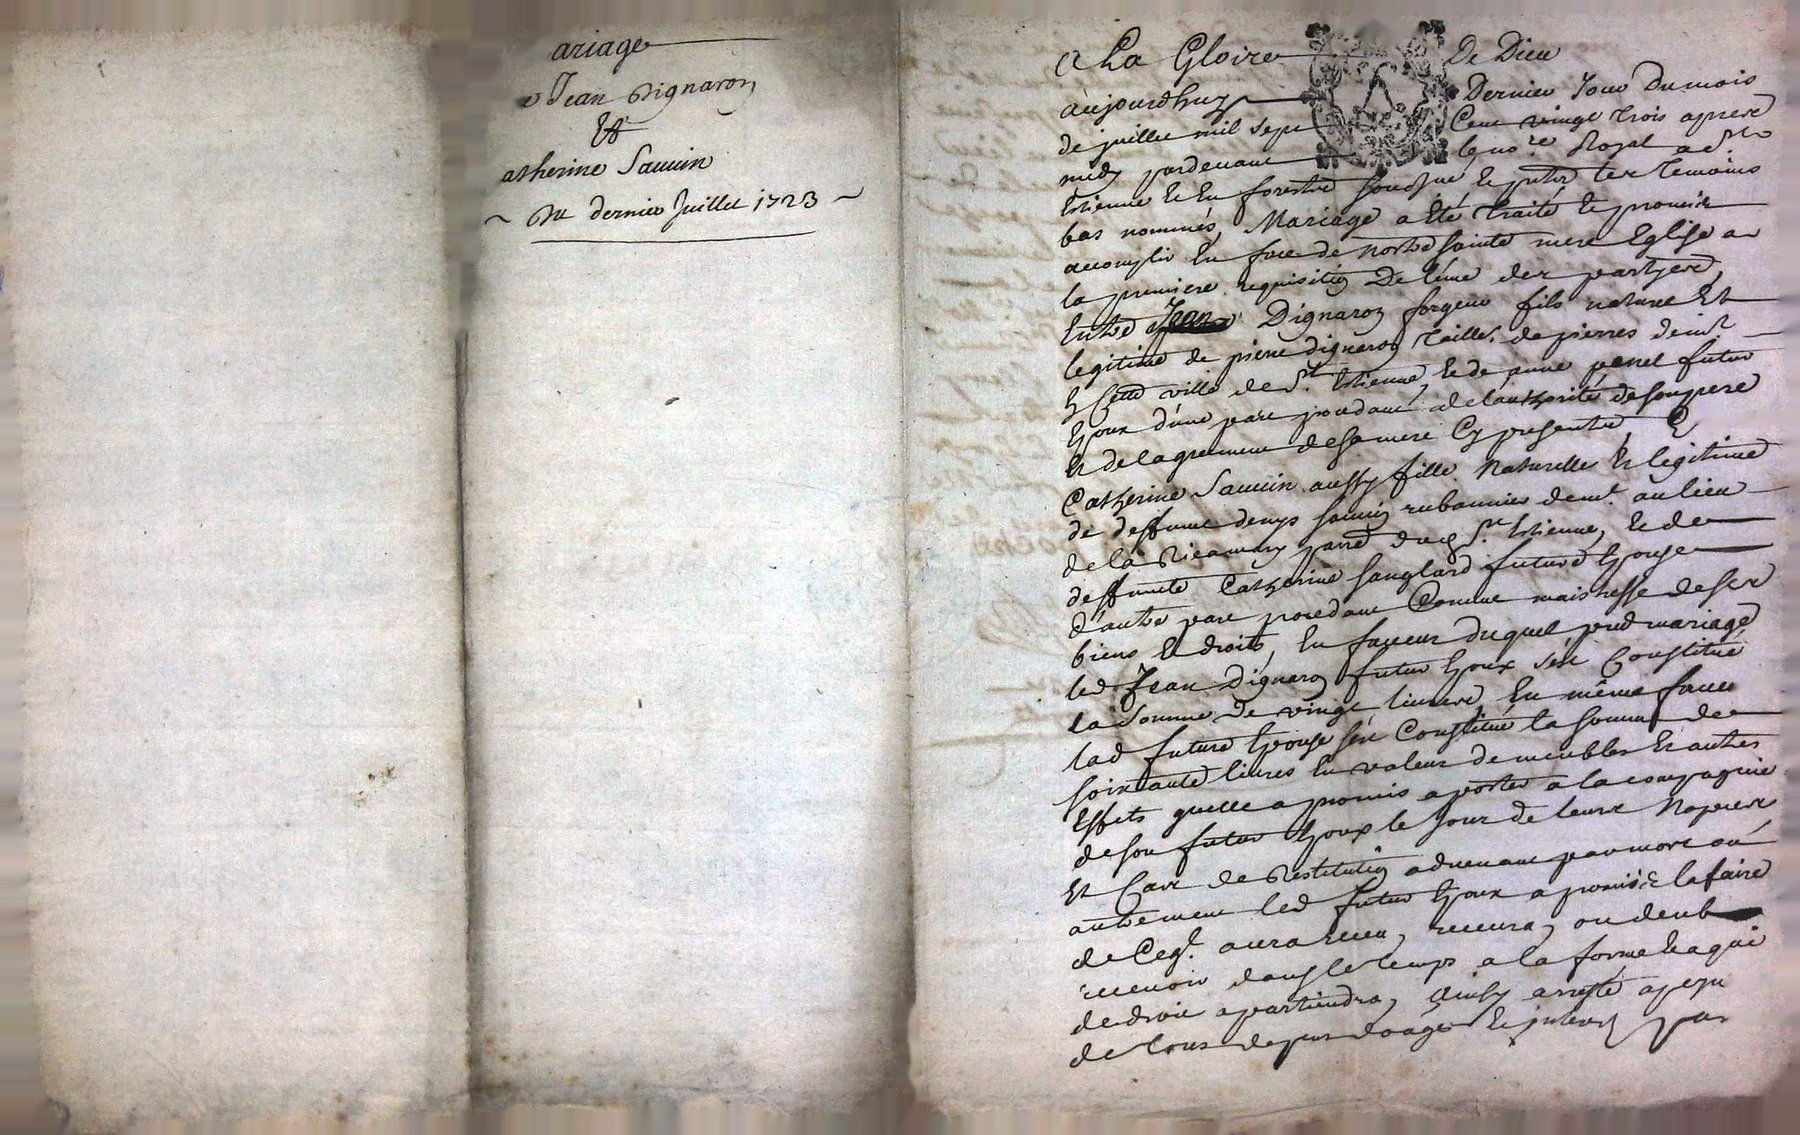 ariage
Jean Dignaron
Et
atherine Sauuin
~ Du dernier Juillet 1723 ~
A La Gloire De Dieu
aujourdhuy Dernier Jour Du mois
de juillet mil sept Cent vingt trois apres
midy pardeuant le no.re Royal a S.t
Estienne En forestz soubsné Et pntz les Temoins
bas nommés, Mariage a Eté traité Et promis
accomplir En face de nostre sainte mere Eglise a
la premiere requisition De l'une des partyes,
Entre Jean Dignaron forgeur fils naturel Et
legitime de pierre dignaron Taille.r de pierres
En Cette ville de S.t Estienne, Et de anne penel futur
Epoux d'une part procedant de l'authorité de son pere
Et de lagrement de sa mere Cy presents, Et
Catherine Sauuin aussy fille Naturelle Et legitime
de deffunt denys sauuin rubannier dem.t au lieu
de la Ricamary parr.e dud S.t Estienne, Et de
deffunte Catherine sanglard future Epouse
d'autre part procedant Comme maistresse de ses
biens Et droits, En faueur duquel pnt mariage
led Jean Dignaron futur Epoux s'est Constitué
la Somme De vingt liures, En même faueur
lad future Epouse s'est Constitué la somme de
soixante liures En valeur de meubles Et autres
Effets quelle a promis aporter a la compagnie
de son futur Epoux le Jour de leurs Nopces
Et Cas de Restitution aduenant par mort ou
autrement led futur Epoux a promis la faire
de Ceq.l aura receu, receura, ou deub
receuoir dans le temps a la forme Et a qui
de droit apartiendra, Ainsy arresté
de tous par